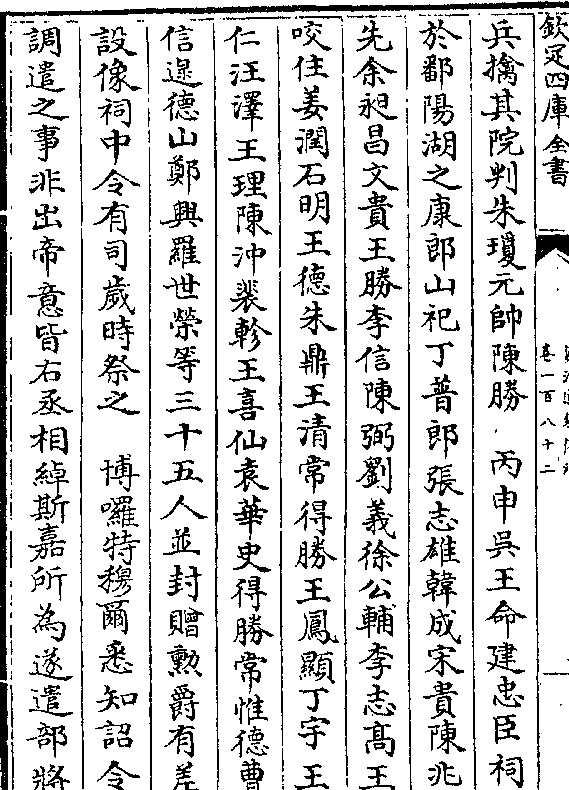 欽定四庫全書
卷一百八十二
兵擒其院判朱瓊元帥陳勝 丙申吳王命建忠臣祠
於鄱陽湖之康郎山祀丁普郎張志雄韓成宋貴陳兆
先余昶昌文貴王勝李信陳弼劉義徐公輔李志高王
咬住姜潤石明王德朱鼎王清常得勝王鳳顯丁宇王
仁汪澤王理陳沖裴軫王喜仙袁華史得勝常惟德曹
信逯德山鄭興羅世榮等三十五人並封贈勳爵有差
設像祠中令有司歲時祭之 博囉特穆爾悉知詔令
調遣之事非出帝意皆右丞相綽斯嘉所為遂遣部將